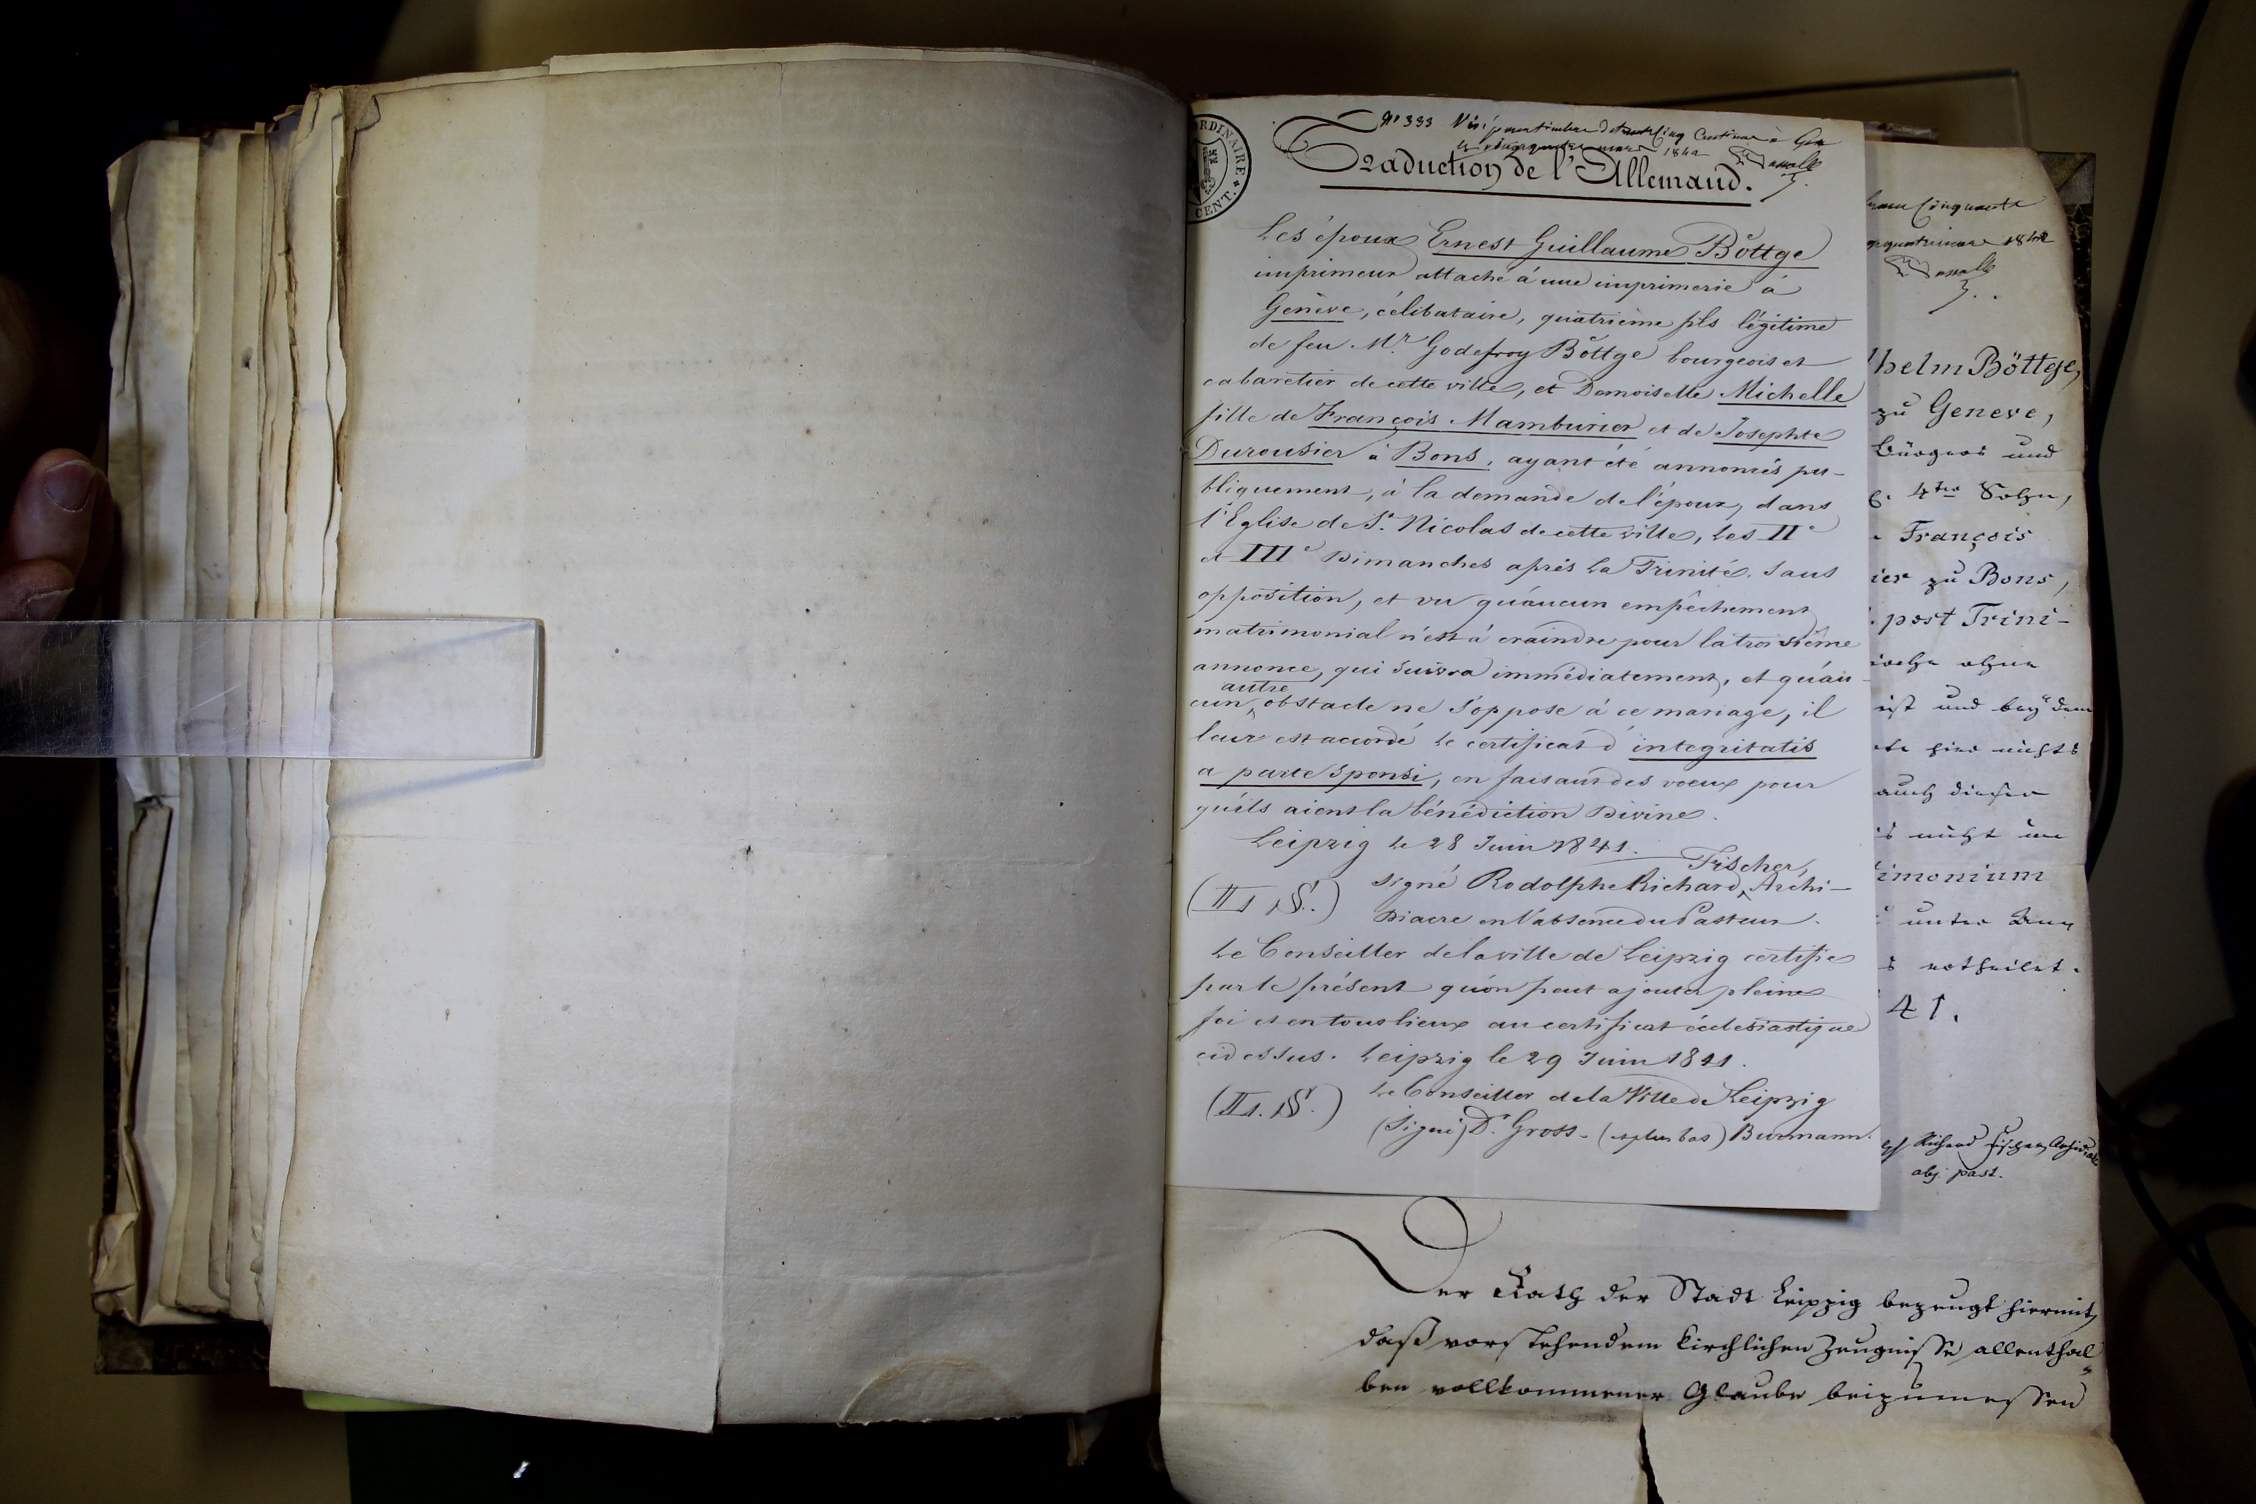 ORDINAIRE
CENT.
No 333 Visé pour timbre de trente Cinq Centimes à Gex
le vingt quatre mars 1842
Traduction de l'Allemand.
Les époux Ernest Guillaume Böttge
imprimeur attaché à une imprimerie à
Genève, célibataire, quatrième fils légitime
de feu Mr. Godefroy Böttge bourgeois et
cabaretier de cette ville, et Demoiselle Michelle
fille de François Mamburier et de Josephte
Durousier à Bons, ayant été annoncés pu-
bliquement, à la demande de l'époux, dans
l'Eglise de St. Nicolas de cette ville, les IIe
et IIIe Dimanches après la Trinité, sans
opposition, et vu qu'aucun empêchement
matrimonial n'est à craindre pour la troisième
annonce, qui suivra immédiatement, et qu'au-
autre
cun obstacle ne s'oppose à ce mariage, il
leur est accordé le certificat d'integritatis
a parte sponsi, en faisant des voeux pour
qu'ils aient la bénédiction Divine.
Leipzig le 28 Juin 1841.
Fischer,
signé Rodolphe Richard Archi-
diacre en l'absence du Pasteur.
Le Conseiller de la ville de Leipzig certifie
par le présent qu'on peut ajouter pleine
foi et en tous lieux au certificat écclesiastique
cidessus. Leipzig le 29 Juin 1841.
Le Conseiller de la Ville de Leipzig
(Signé) Dr. Gross - (et plus bas) Burmann.
Cinquante
1842
helm Böttge,
zu Geneve,
Bürgers und
4ter Sohn,
François
ier zu Bons,
post Trini-
ohne
ist und bey dem
hier nichts
auch dieser
nicht im
imonium
unter Anw
ertheilet.
41.
Richard Fischer, Archidiak
abs. past.
Der Rath der Stadt Leipzig bezeugt hiermit,
daß vorstehendem kirchlichen Zeugnisse allenthal=
ben vollkommener Glaube beizumessen